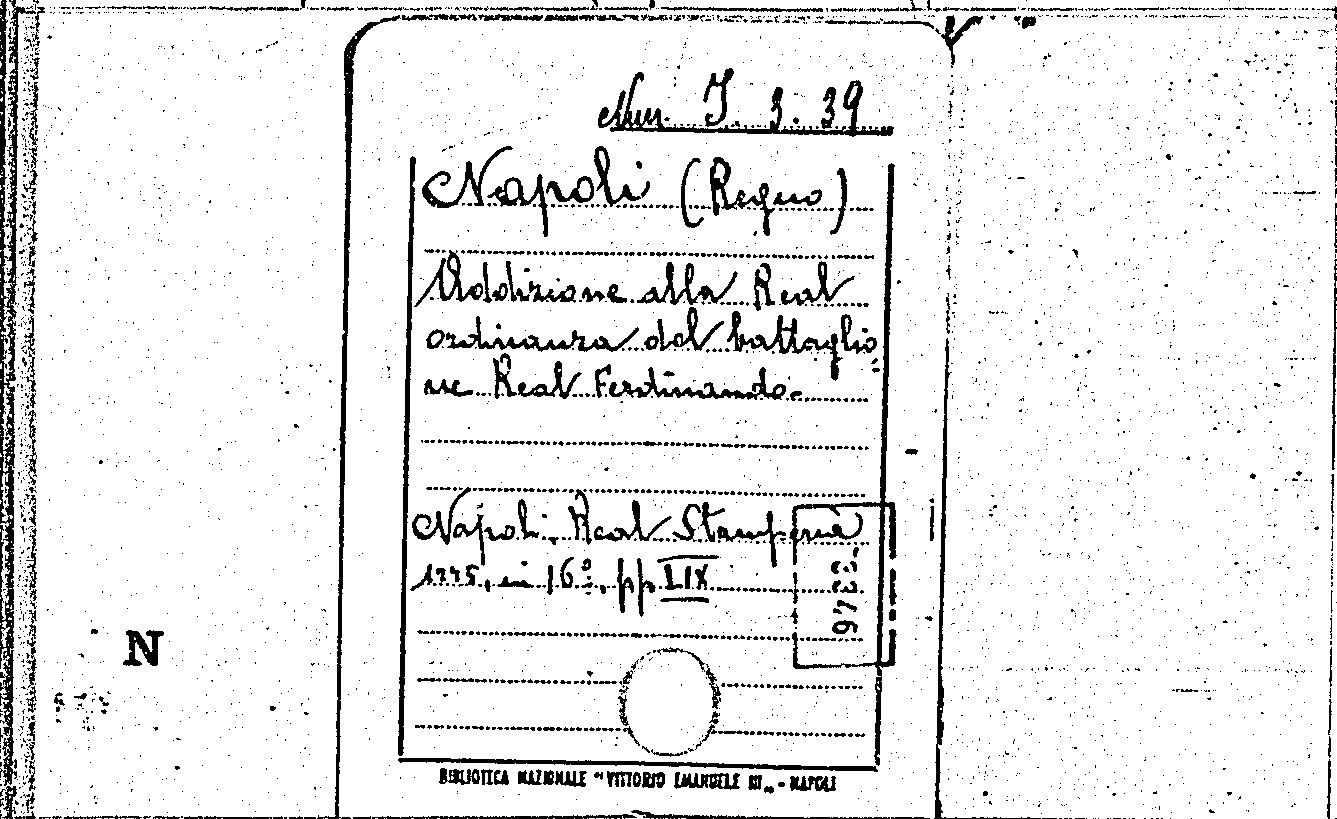 Min. I. 3. 39
Napoli (Regno)
Addizione alla Real
ordinanza del battaglio=
ne Real Ferdinando.
Napoli. Real Stamperia
1775, in 16º. pp. LIX
N
BIBLIOTECA NAZIONALE "VITTORIO EMANUELE III„ - NAPOLI